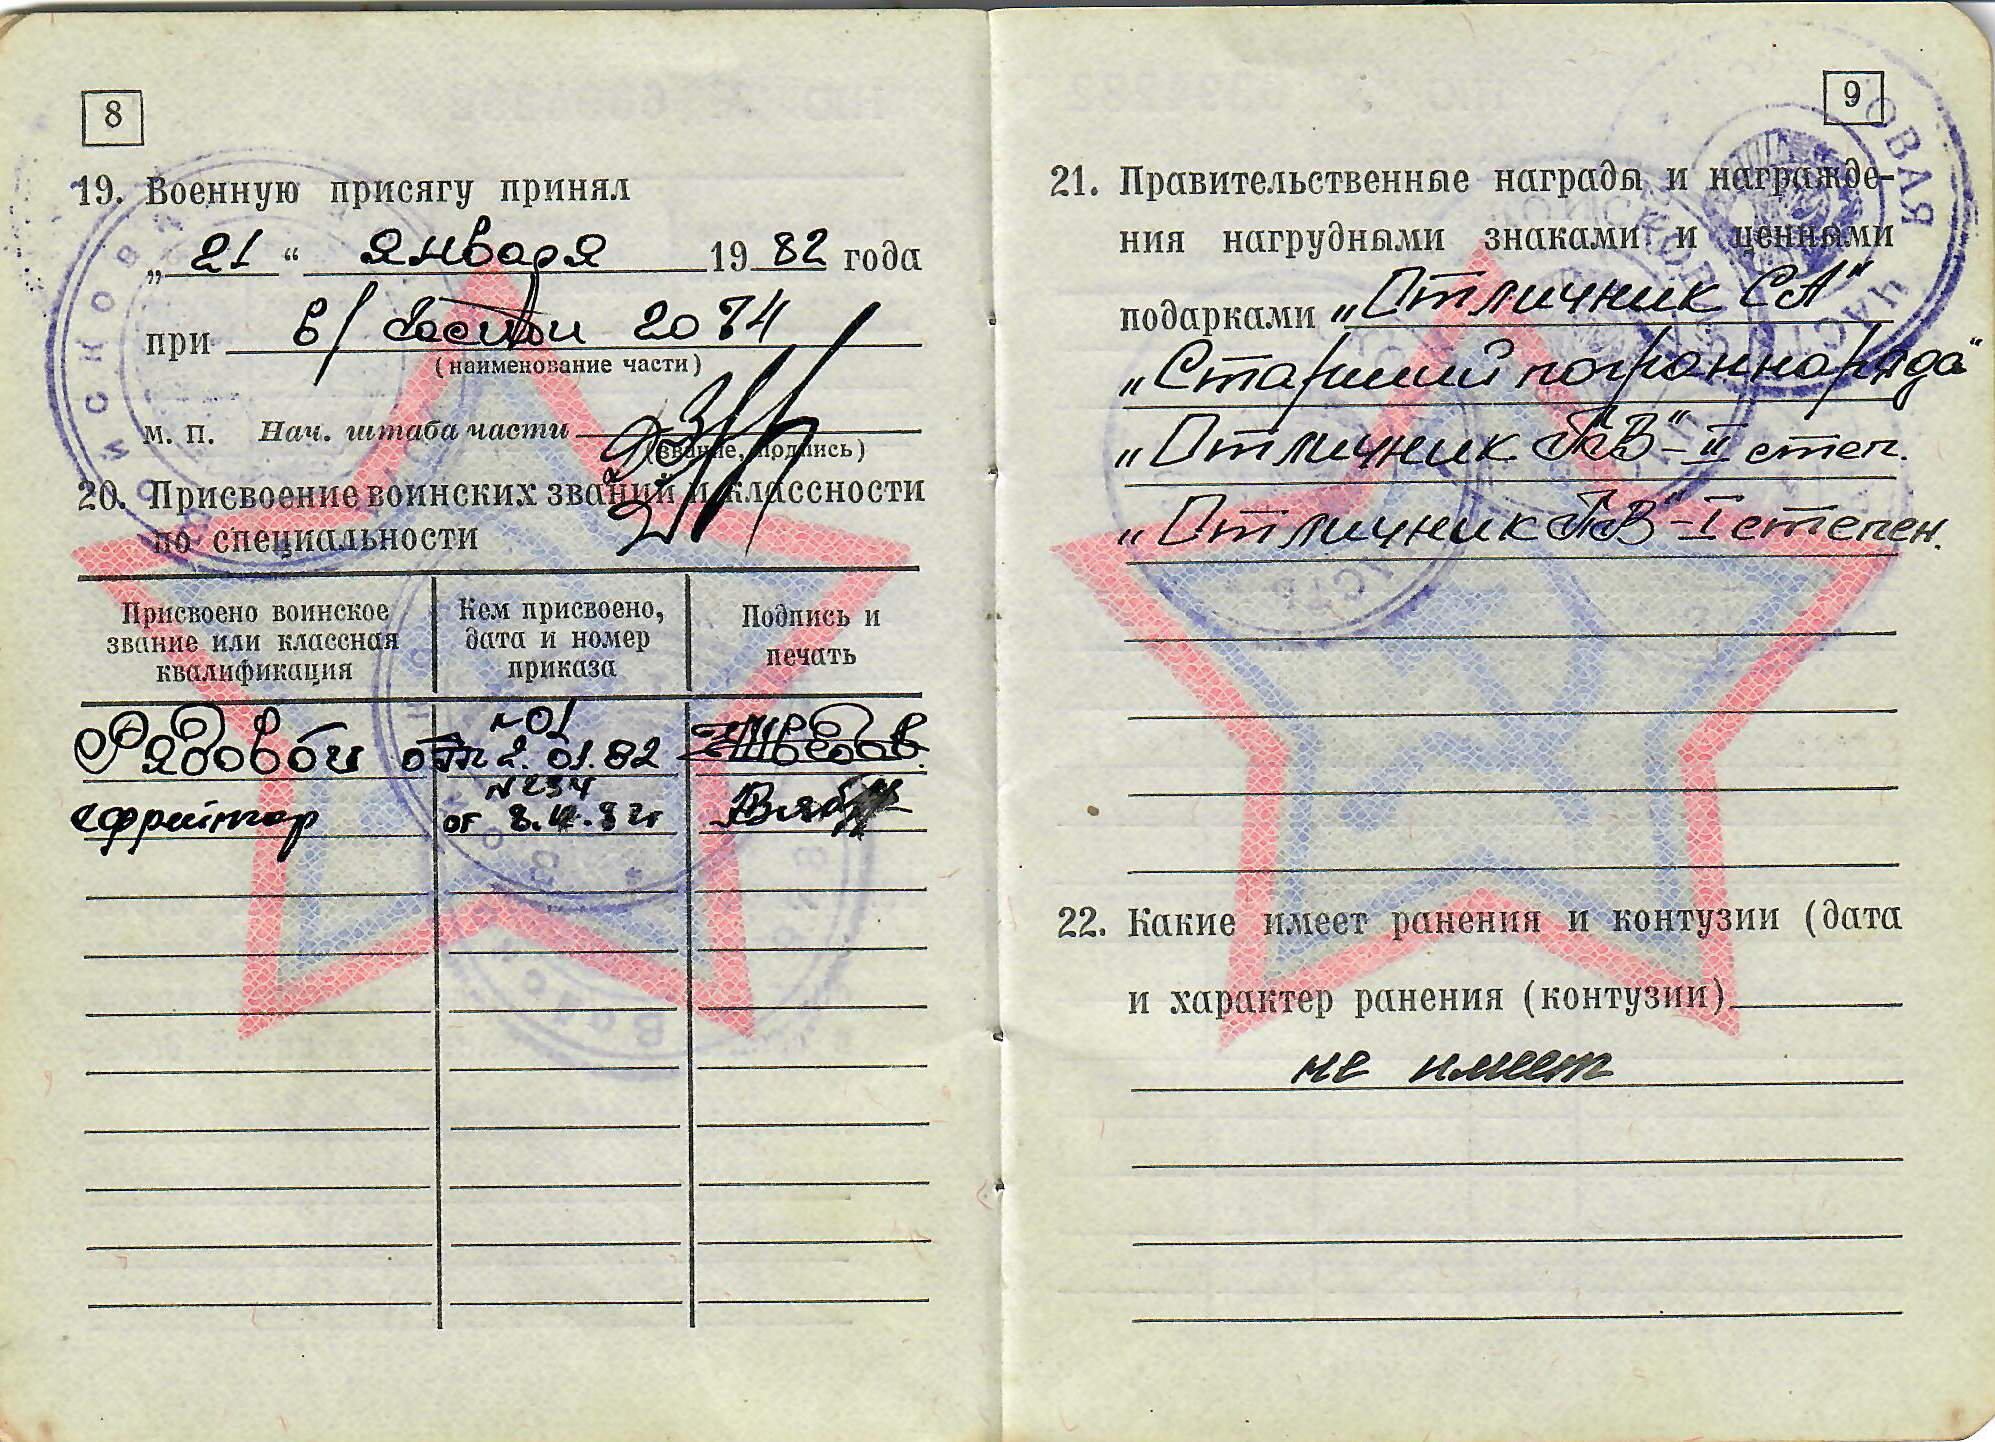 8
19. Военную присягу принял
„21“ января 1982 года
при в/части 2074
(наименование части)
м. п. Нач. штаба части
(звание, подпись)
20. Присвоение воинских званий и классности
по специальности
Присвоено воинское звание или классная квалификация
Кем присвоено, дата и номер приказа
Подпись и печать
Рядовой
№01
от 2.01.82
ефрейтор
№234
от 8. .82г
9
21. Правительственные награды и награжде-
ния нагрудными знаками и ценными
подарками „Отличник СА“
„Старший пограннаряда“
„Отличник ПВ“-II степ.
„Отличник ПВ“-I степен.
22. Какие имеет ранения и контузии (дата
и характер ранения (контузии)
не имеет
ВОЙСКОВАЯ ЧАСТЬ